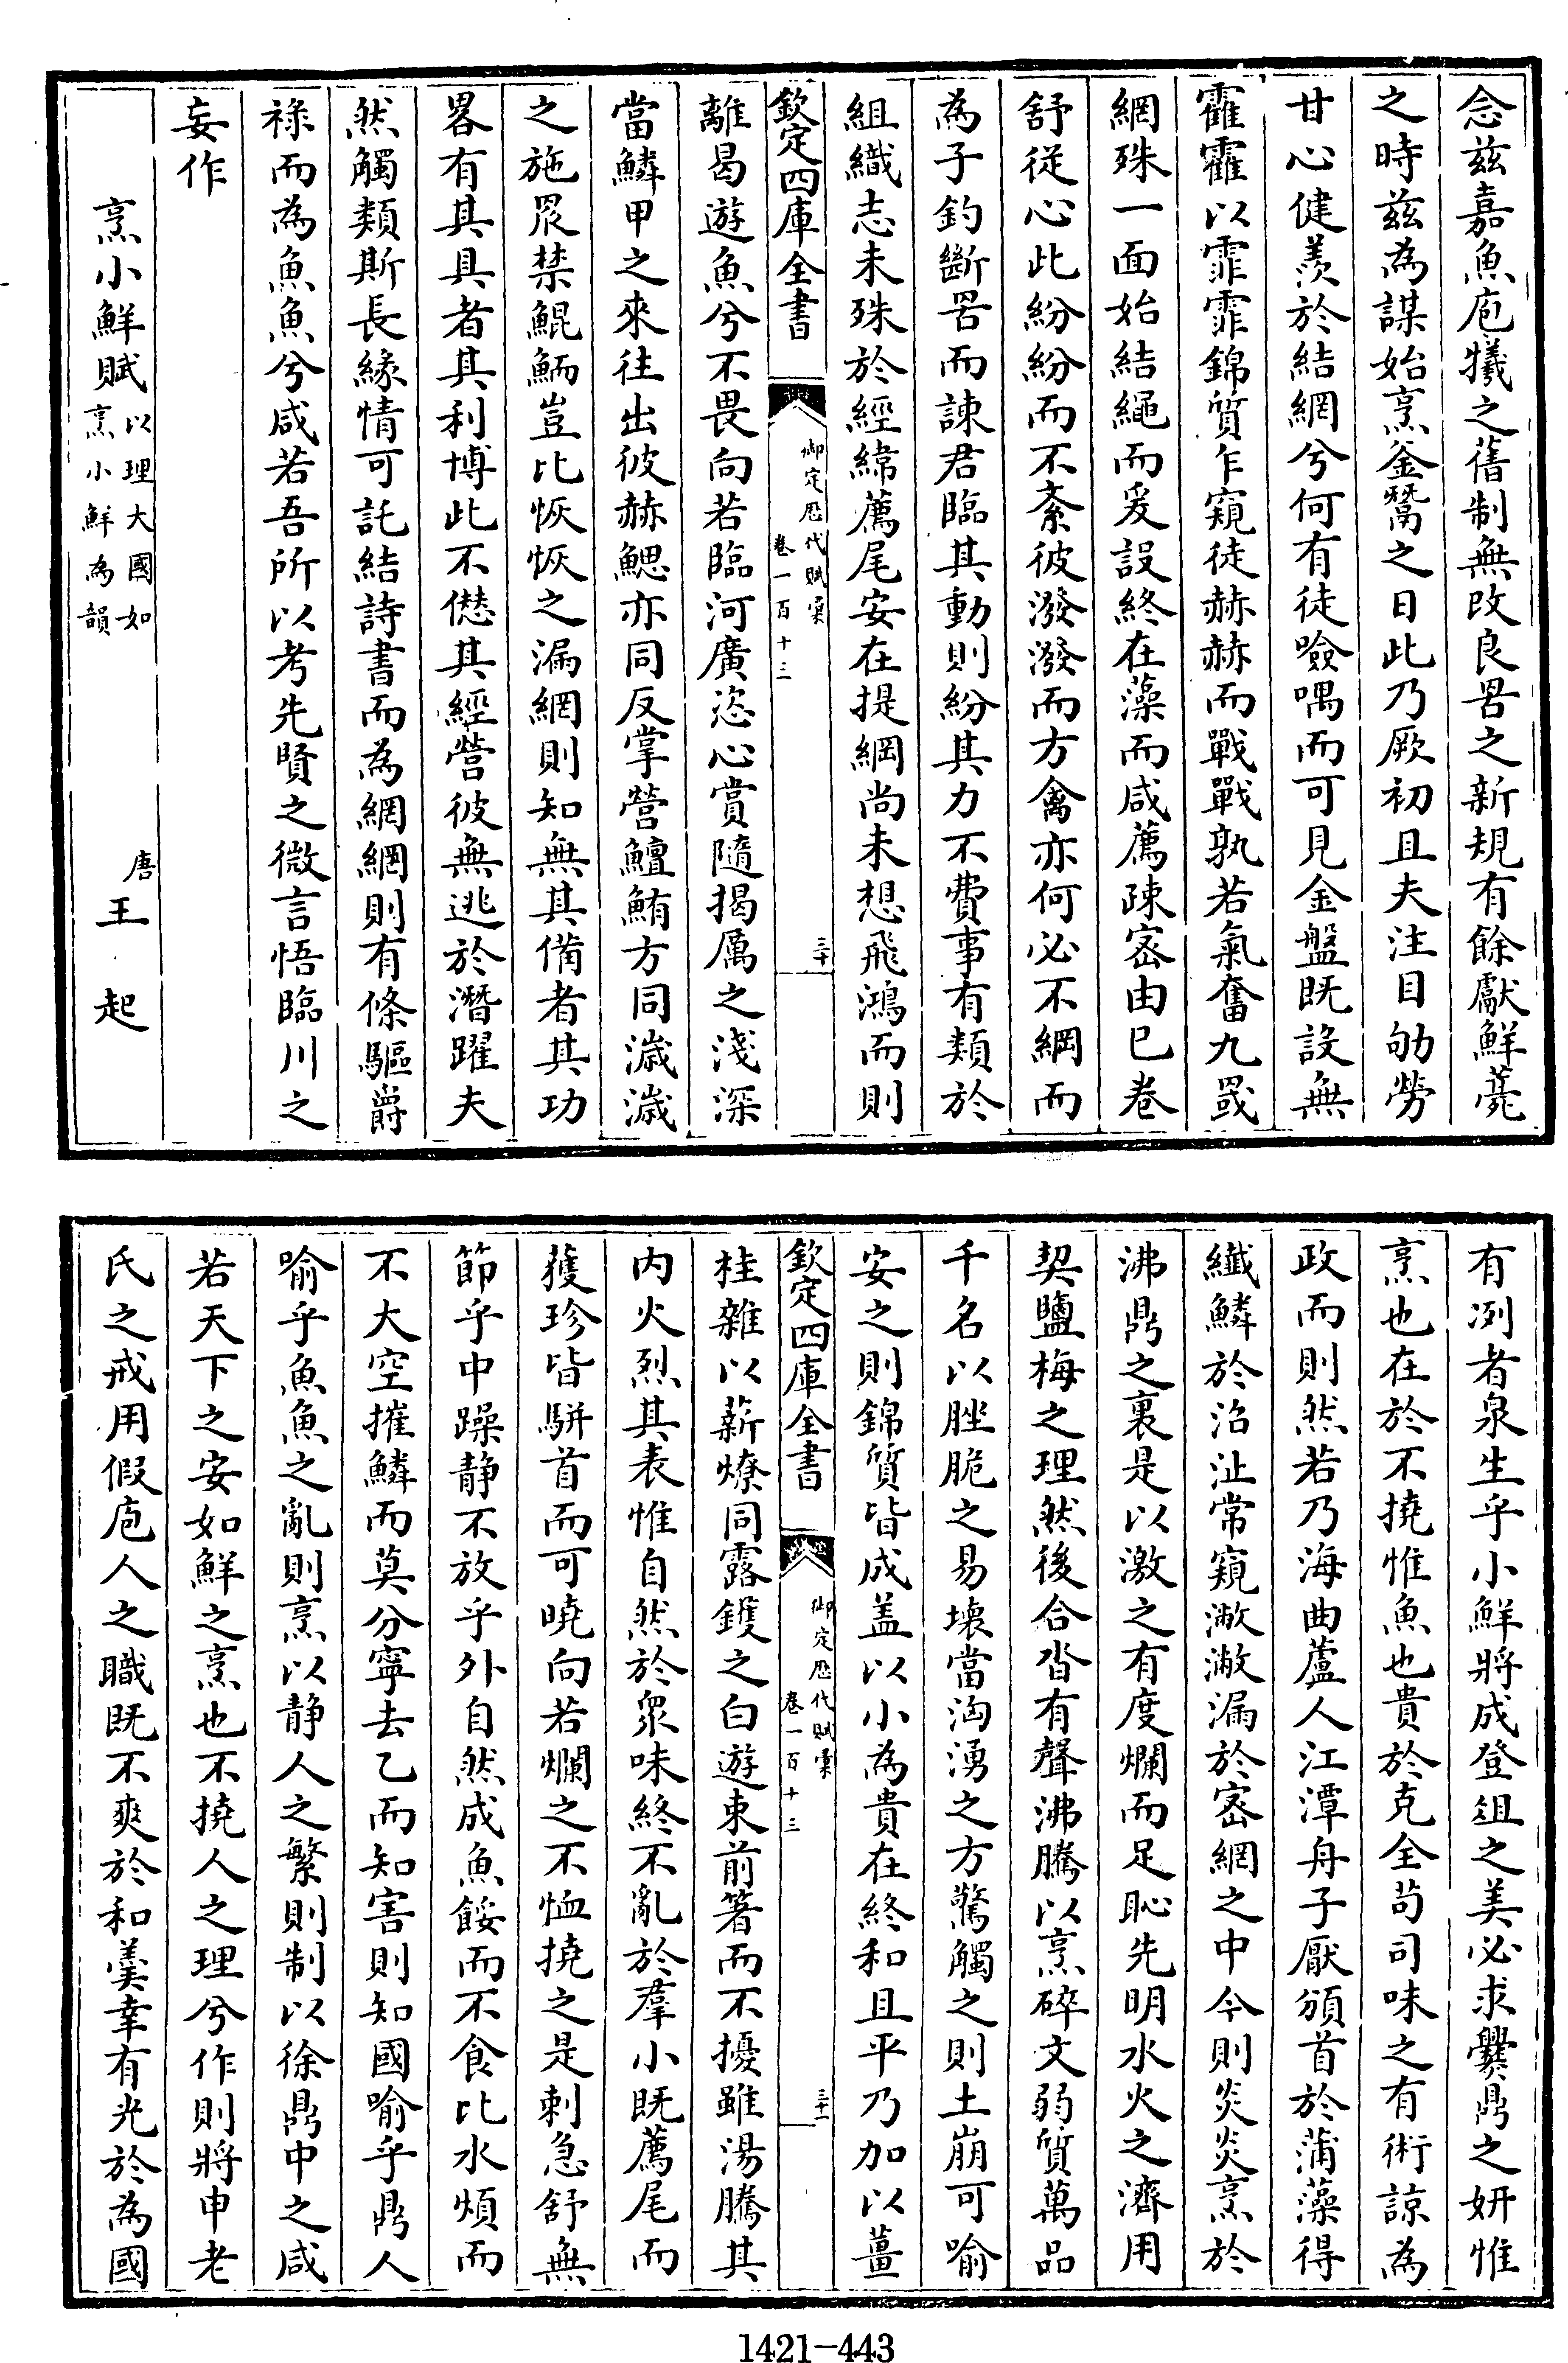 念兹嘉魚庖犧之舊制無改良罟之新規有餘獻鮮薧
之時兹為謀始烹釜鬵之日此乃厥初且夫注目劬勞
甘心健羨於結網兮何有徒噞喁而可見金盤既設無
霍霍以霏霏錦質乍窺徒赫赫而戰戰孰若氣奮九罭
網殊一面始結繩而爰設終在藻而咸薦疎宻由已卷
舒從心此紛紛而不紊彼潑潑而方禽亦何必不綱而
為子釣斷罟而諫君臨其動則紛其力不費事有類於
組織志未殊於經緯薦尾安在提綱尚未想飛鴻而則
欽定四庫全書
御定歴代賦彙
卷一百十三
三十
離曷遊魚兮不畏向若臨河廣恣心賞隨揭厲之淺深
當鱗甲之來往出彼赫鰓亦同反掌營鱣鮪方同濊濊
之施罛禁鯤鮞豈比恢恢之漏網則知無其備者其功
畧有其具者其利博此不愆其經營彼無逃於潛躍夫
然觸類斯長緣情可託結詩書而為網網則有條驅爵
祿而為魚魚兮咸若吾所以考先賢之微言悟臨川之
妄作
烹小鮮賦
以理大國如
烹小鮮為韻
唐
王起
有冽者泉生乎小鮮將成登俎之美必求爨鼎之妍惟
烹也在於不撓惟魚也貴於克全苟司味之有術諒為
政而則然若乃海曲蘆人江潭舟子厭頒首於蒲藻得
纖鱗於沼沚常窺潎潎漏於宻網之中今則炎炎烹於
沸鼎之裏是以激之有度爛而足恥先明水火之濟用
契鹽梅之理然後合沓有聲沸騰以烹碎文弱質萬品
千名以脞脆之易壞當洶湧之方驚觸之則土崩可喻
安之則錦質皆成盖以小為貴在終和且平乃加以薑
欽定四庫全書
御定歴代賦彙
卷一百十三
三十一
桂雜以薪燎同露鑊之白遊束前箸而不擾雖湯騰其
内火烈其表惟自然於衆味終不亂於羣小既薦尾而
獲珍皆駢首而可曉向若爛之不恤撓之是剌急舒無
節乎中躁静不放乎外自然成魚餒而不食比水煩而
不大空摧鱗而莫分寧去乙而知害則知國喻乎鼎人
喻乎魚魚之亂則烹以静人之繁則制以徐鼎中之咸
若天下之安如鮮之烹也不撓人之理兮作則將申老
氏之戒用假庖人之職既不爽於和羹幸有光於為國
1421-443